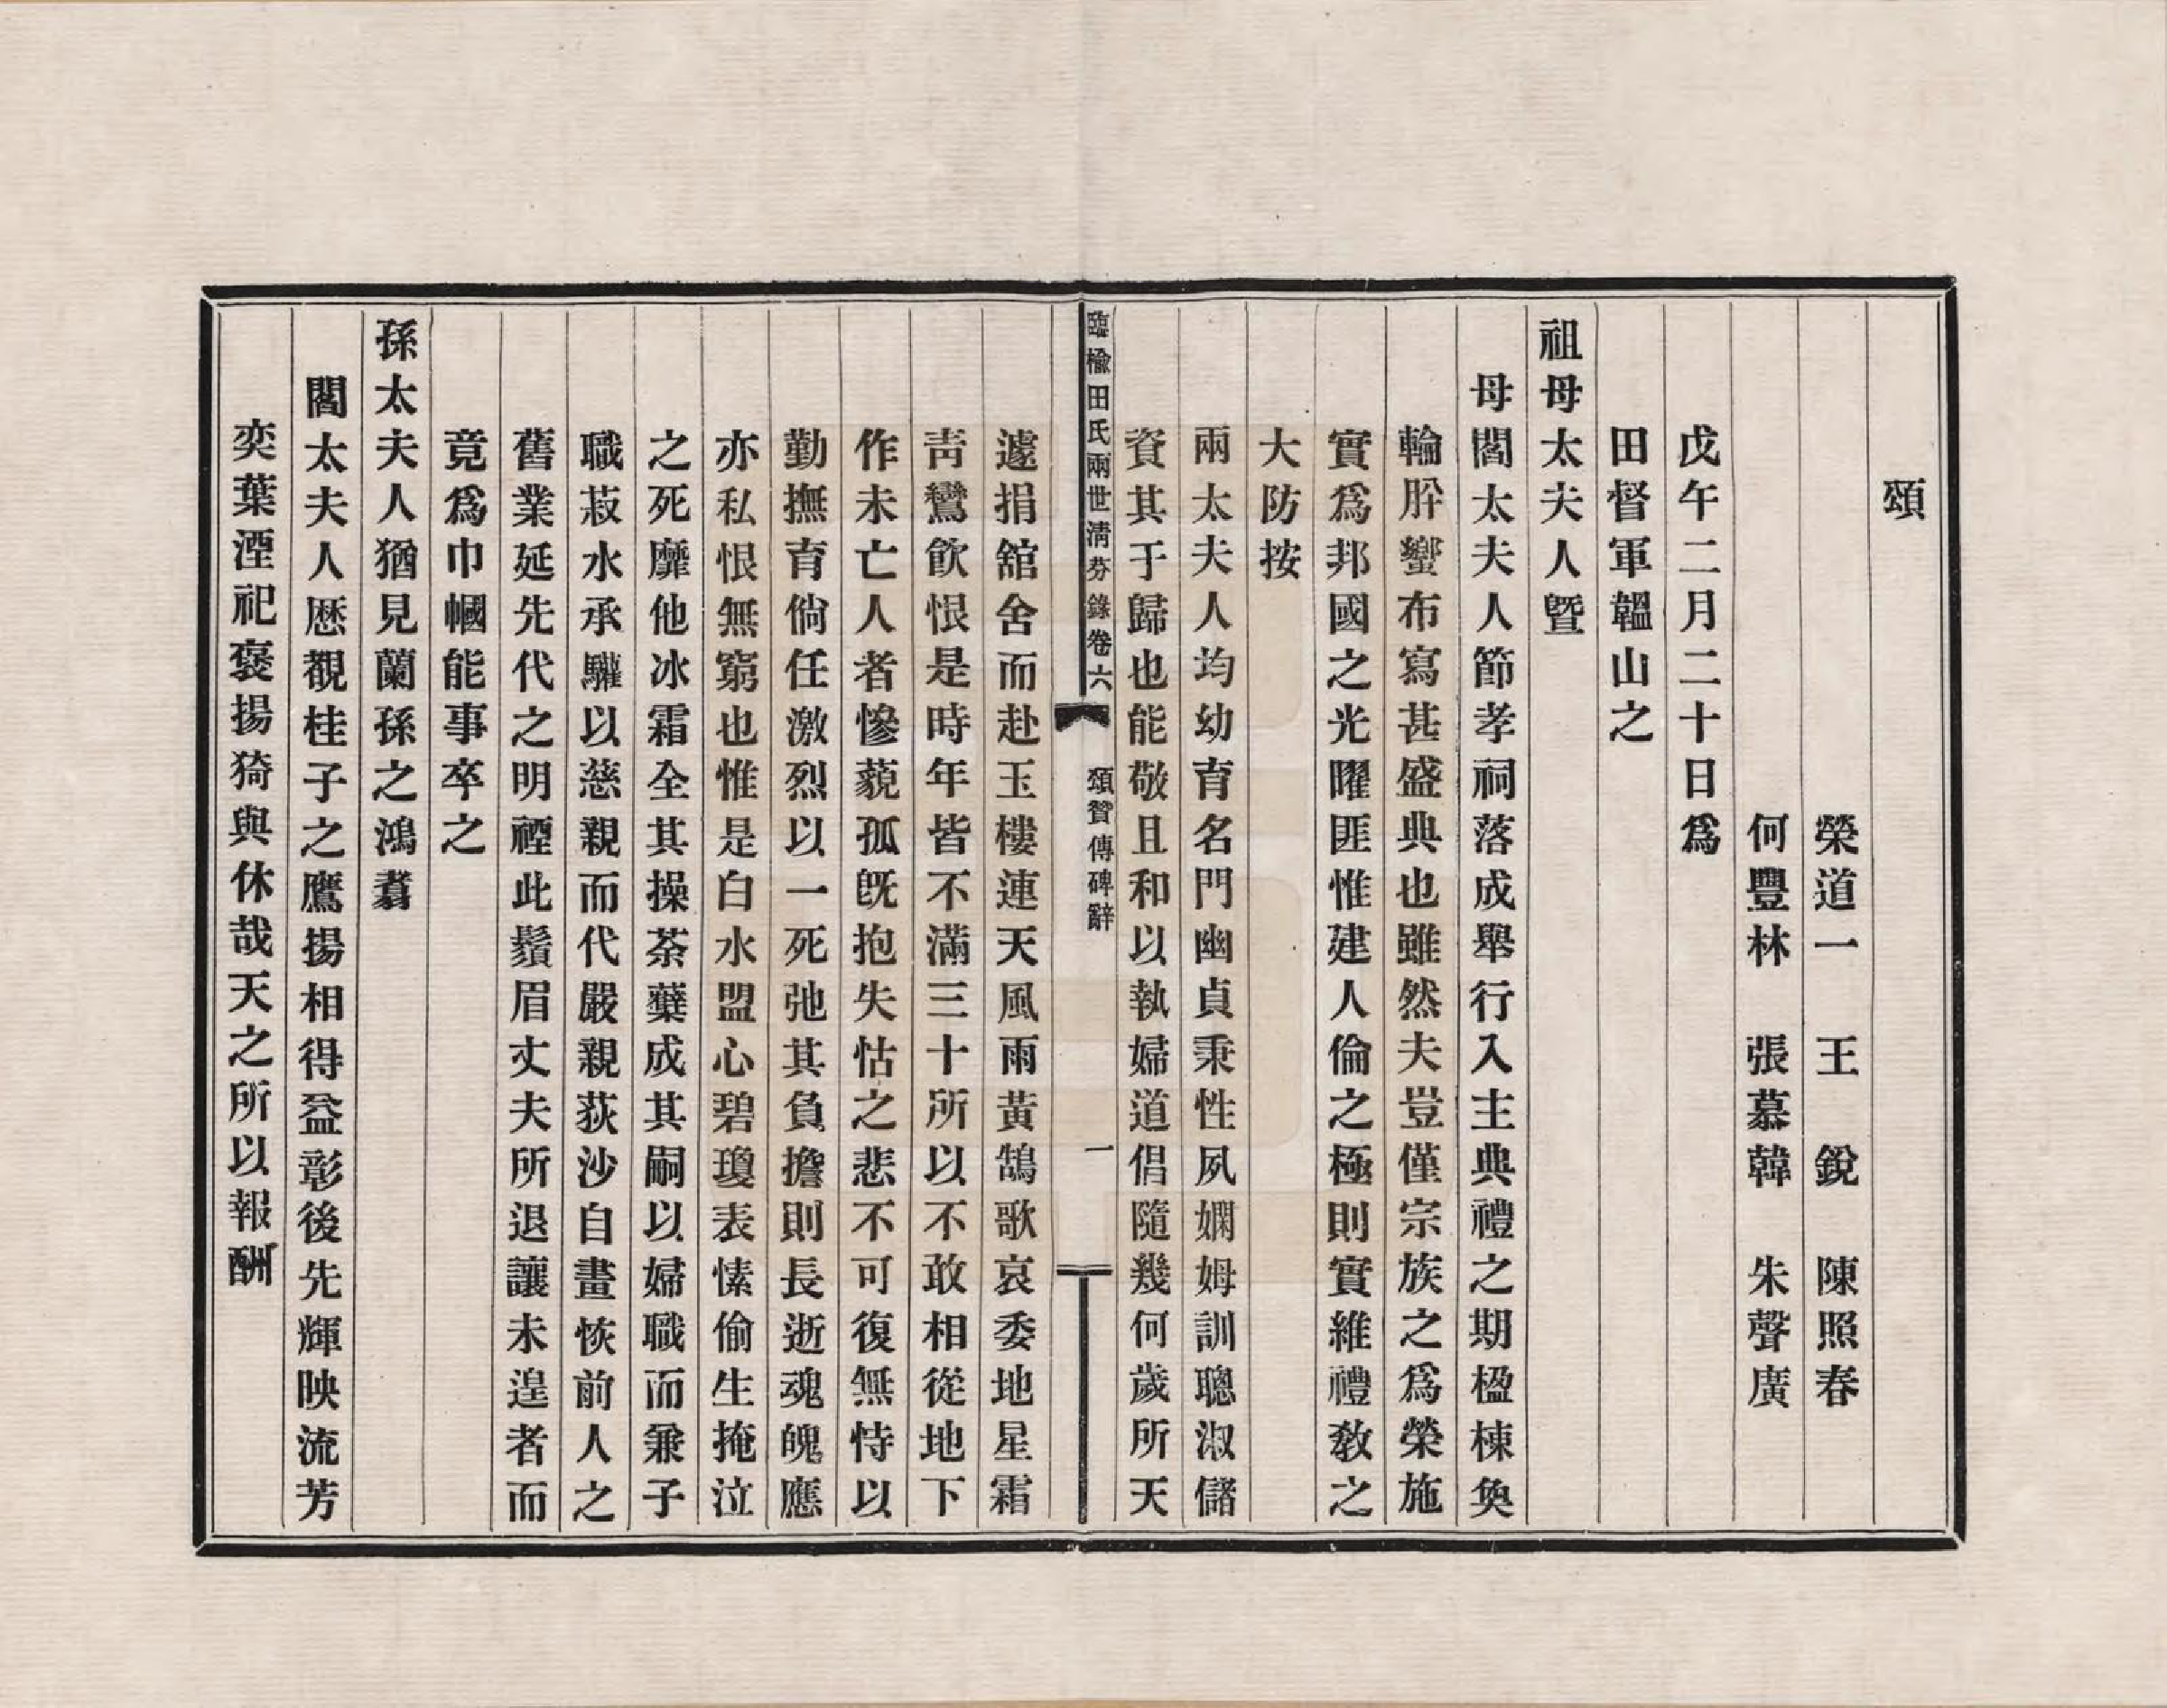 頌
榮道一　王　銳　陳照春
何豐林　張慕韓　朱聲廣
戊午二月二十日爲
田督軍韞山之
祖母太夫人曁
母閻太夫人節孝祠落成舉行入主典禮之期楹棟奐
輪肸蠁布寫甚盛典也雖然夫豈僅宗族之爲榮施
實爲邦國之光曜匪惟建人倫之極則實維禮敎之
大防按
兩太夫人均幼育名門幽貞秉性夙嫻姆訓聰淑儲
資其于歸也能敬且和以執婦道倡隨幾何歲所天
臨楡田氏兩世淸芬錄卷六　頌贊傳碑辭　一
遽捐舘舍而赴玉樓連天風雨黃鵠歌哀委地星霜
靑鸞飮恨是時年皆不滿三十所以不敢相從地下
作未亡人者慘藐孤旣抱失怙之悲不可復無恃以
勤撫育倘任激烈以一死弛其負擔則長逝魂魄應
亦私恨無窮也惟是白水盟心碧瓊表愫偷生掩泣
之死靡他冰霜全其操荼蘗成其嗣以婦職而兼子
職菽水承驩以慈親而代嚴親荻沙自畫恢前人之
舊業延先代之明禋此鬚眉丈夫所退讓未遑者而
竟爲巾幗能事卒之
孫太夫人猶見蘭孫之鴻翥
閻太夫人歷覩桂子之鷹揚相得益彰後先輝映流芳
奕葉湮祀褒揚猗與休哉天之所以報酬